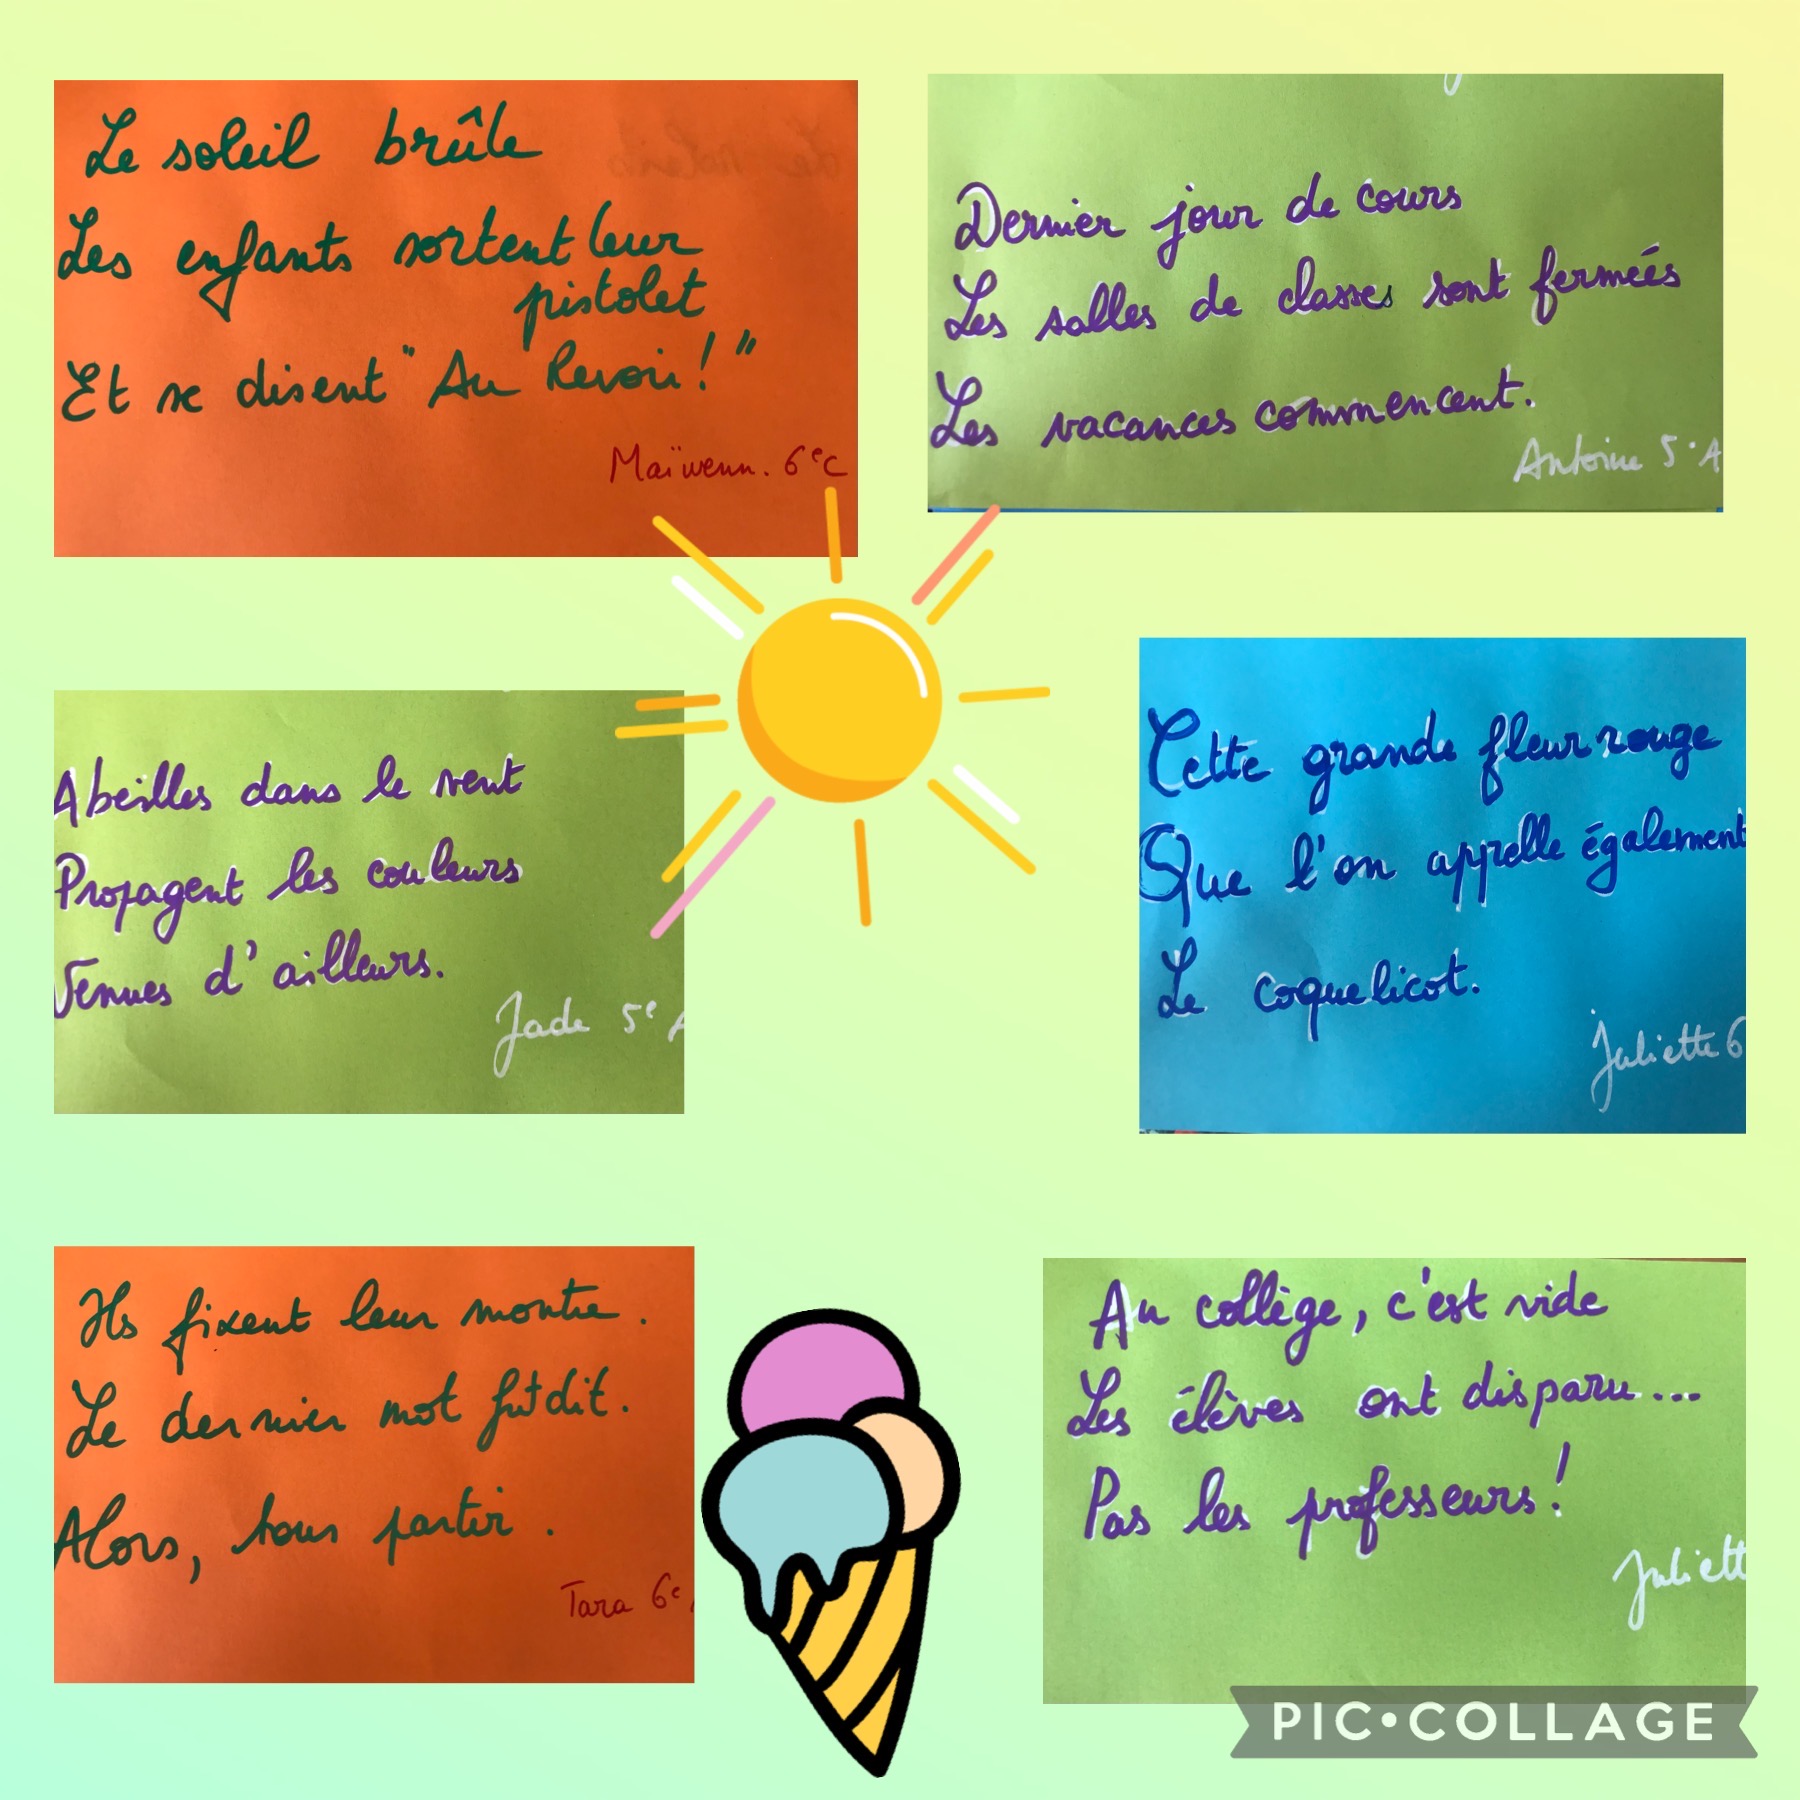 Le soleil brûle
Les enfants sortent leur
pistolet
Et se disent "Au Revoir!"
Maïwenn. 6e C
Dernier jour de cours
Les salles de classes sont fermeés
Les vacances commencent.
Antoine 5e A
Abeilles dans le vent
Propagent les couleurs
Venues d'ailleurs.
Jade 5e A
Cette grande fleur rouge
Que l'on appelle également
Le coquelicot.
Juliette 6
Ils fixent leur montre.
Le dernier mot fut dit.
Alors, tous partir.
Tara 6e
Au collège, c'est vide
Les élèves ont disparu...
Pas les professeurs!
Juliett
PIC•COLLAGE